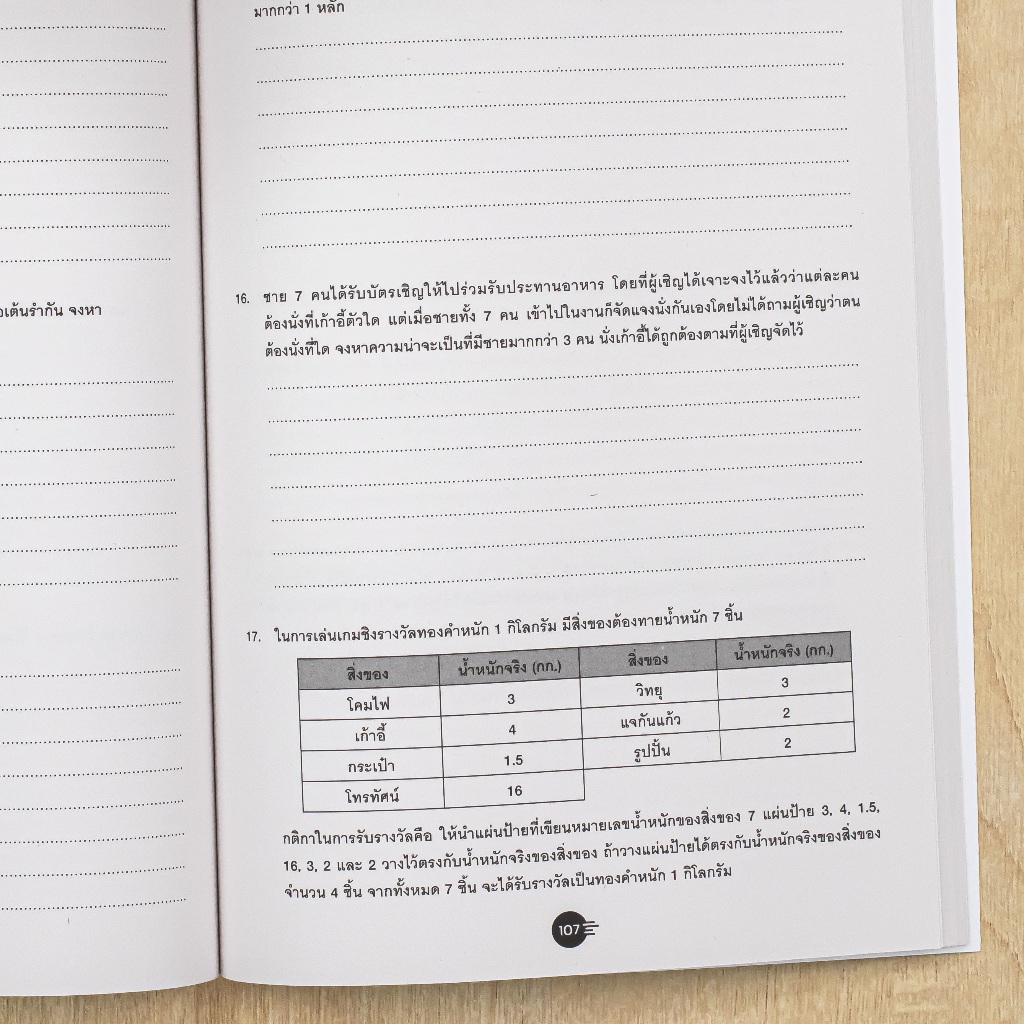 มากกว่า 1 หลัก
เต้นรำกัน จงหา
16. ชาย 7 คนได้รับบัตรเชิญให้ไปร่วมรับประทานอาหาร โดยที่ผู้เชิญได้เจาะจงไว้แล้วว่าแต่ละคน
ต้องนั่งที่เก้าอี้ตัวใด แต่เมื่อชายทั้ง 7 คน เข้าไปในงานก็จัดแจงนั่งกันเองโดยไม่ได้ถามผู้เชิญว่าตน
ต้องนั่งที่ใด จงหาความน่าจะเป็นที่มีชายมากกว่า 3 คน นั่งเก้าอี้ได้ถูกต้องตามที่ผู้เชิญจัดไว้
17. ในการเล่นเกมชิงรางวัลทองคำหนัก 1 กิโลกรัม มีสิ่งของต้องทายน้ำหนัก 7 ชิ้น
สิ่งของ น้ำหนักจริง (กก.) สิ่งของ น้ำหนักจริง (กก.)
โคมไฟ 3 วิทยุ 3
เก้าอี้ 4 แจกันแก้ว 2
กระเป๋า 1.5 รูปปั้น 2
โทรทัศน์ 16
กติกาในการรับรางวัลคือ ให้นำแผ่นป้ายที่เขียนหมายเลขน้ำหนักของสิ่งของ 7 แผ่นป้าย 3, 4, 1.5,
16, 3, 2 และ 2 วางไว้ตรงกับน้ำหนักจริงของสิ่งของ ถ้าวางแผ่นป้ายได้ตรงกับน้ำหนักจริงของสิ่งของ
จำนวน 4 ชิ้น จากทั้งหมด 7 ชิ้น จะได้รับรางวัลเป็นทองคำหนัก 1 กิโลกรัม
107